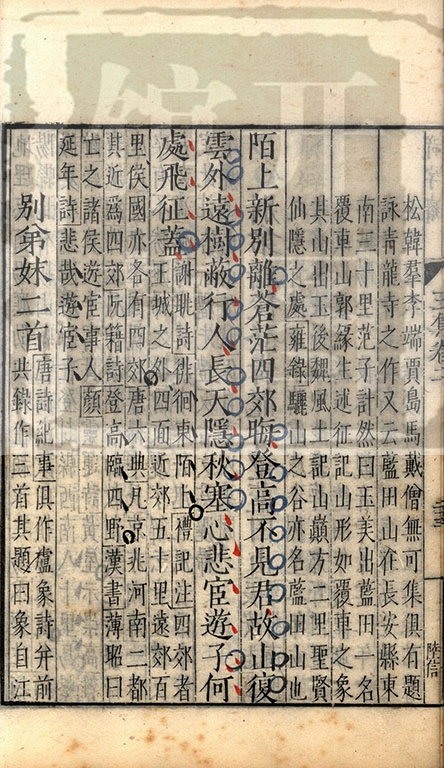 松韓羣李端賈島馬戴僧無可集俱有題
詠青龍寺之作又云藍田山在長安縣東
南三十里范子計然曰玉美出藍田一名
覆車山郭緣生述征記山形如覆車之象
其山出玉後魏風土記山巔方二里聖賢
仙隱之處雍錄驪山之谷亦名藍田山也
陌上新別離蒼茫四郊晦登高不見君故山復
雲外遠樹蔽行人長天隱秋塞心悲宦遊子何
處飛征蓋
謝眺詩徘徊東陌上禮記注四郊者
王城之外四面近郊五十里遠郊百
里侯國亦各有四郊唐六典凡京兆河南二都
其近爲四郊阮籍詩登高臨四野漢書薄昭曰
亡之諸侯遊宦事人顏
延年詩悲哉遊宦子
別弟妹二首
唐詩紀事俱作盧象詩弁前
共錄作三首其題曰象自江
陸信